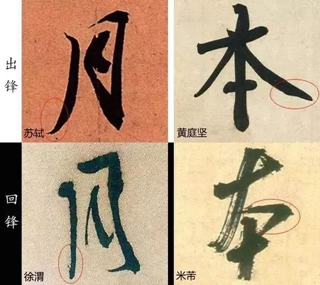 出锋
月
苏轼
本
黄庭坚
回锋
月
徐渭
本
米芾